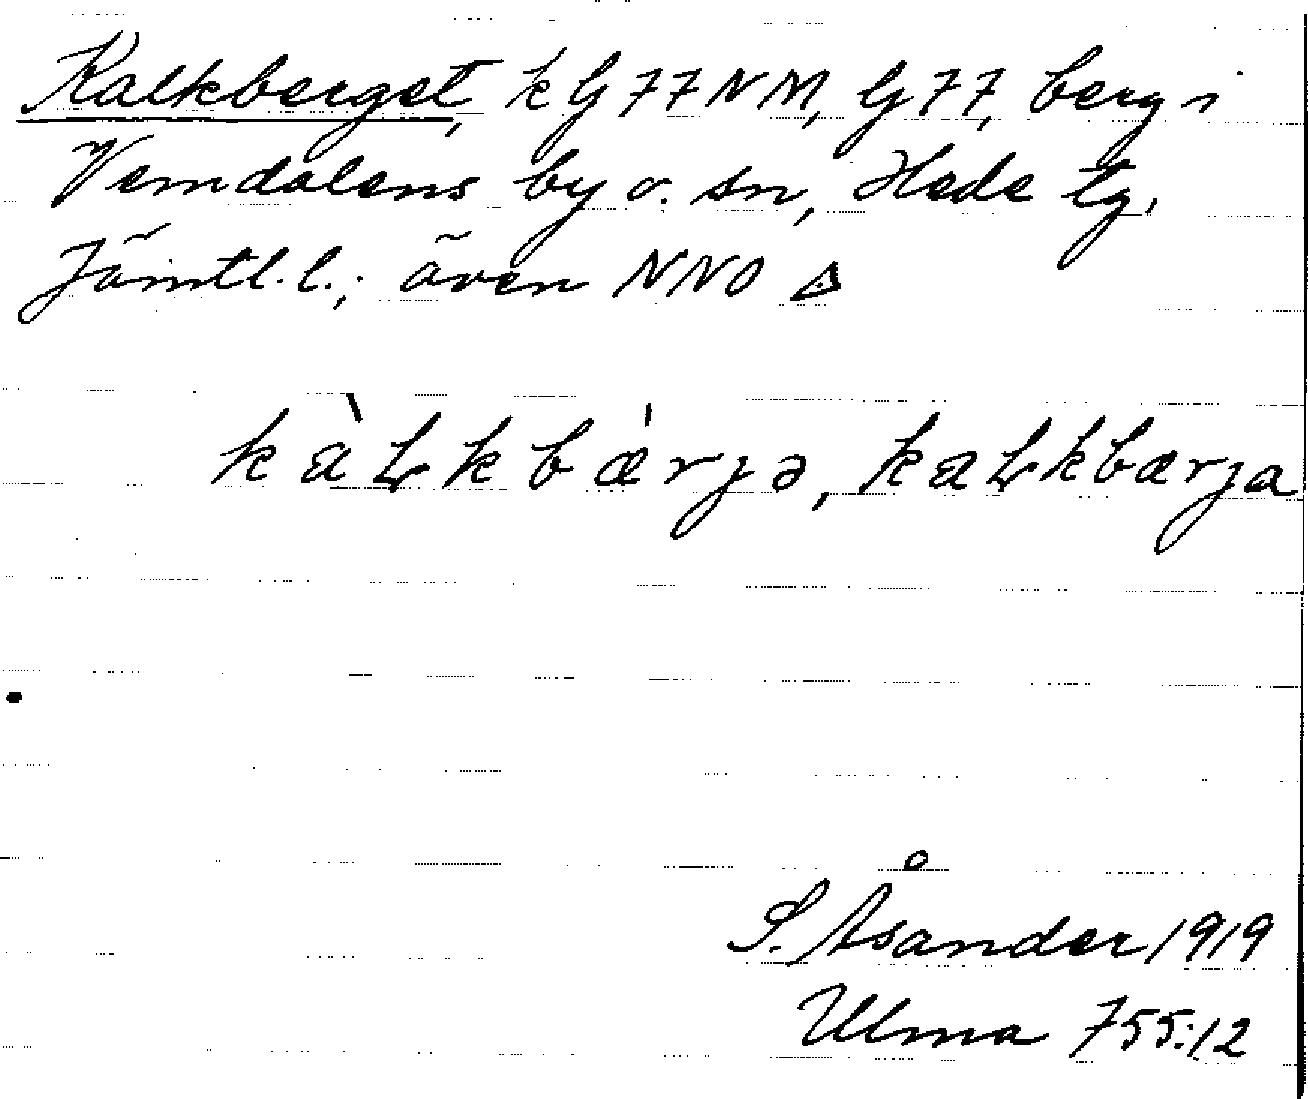 Kalkberget, k G 77 NM, G 77, berg i
Vemdalens by o. sn, Hede tg,
Jämtl. l.; även NNO Δ
kàLkbæ̀rjə, kaLkbærja
S. Åsander 1919
Ulma 755:12